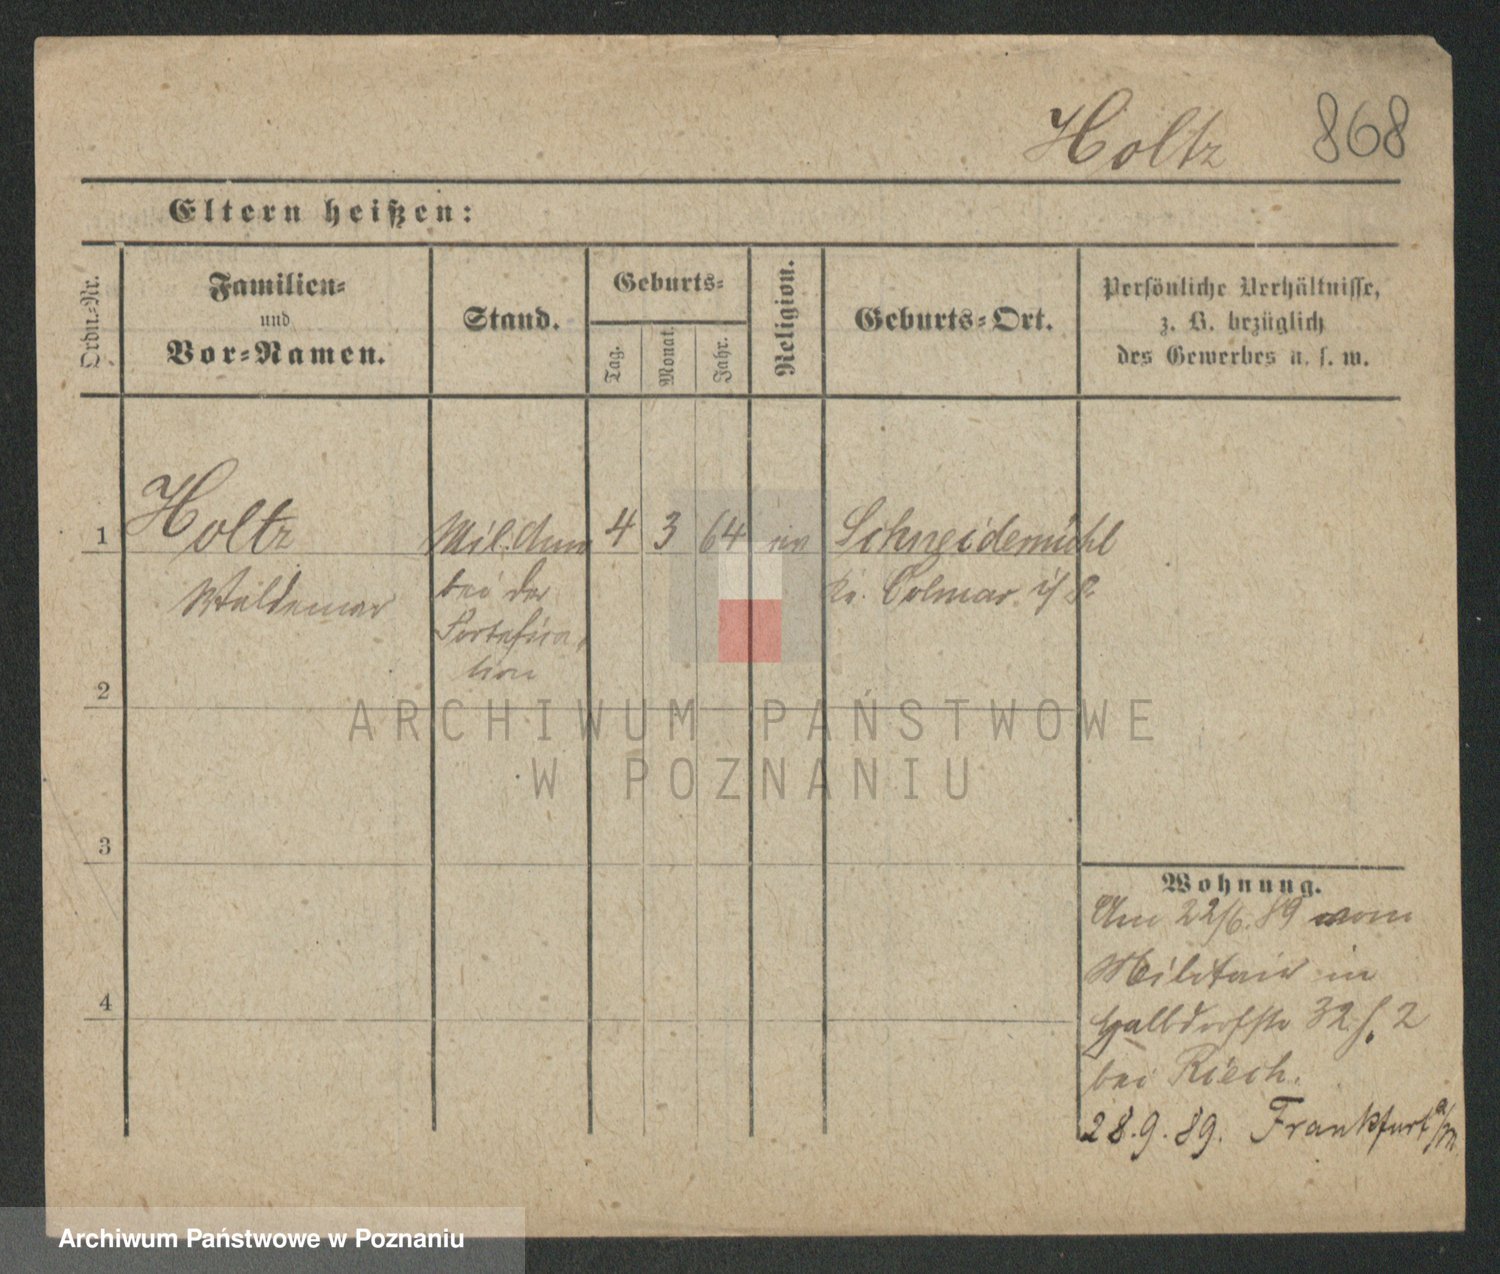 Holtz 868
Eltern heißen:
Ordn.-Nr.
Familien-
und
Vor-Namen.
Stand.
Geburts-
Tag.
Monat.
Jahr.
Religion.
Geburts-Ort.
Persönliche Verhältnisse,
z. B. bezüglich
des Gewerbes u. s. w.
1 Holtz Mil. 4 3 64 ev Schneidemühl
Waldemar bei der Kr. Colmar i/P
Fortifica
tion
2
ARCHIWUM PAŃSTWOWE
W POZNANIU
3
Wohnung.
Am 22/6. 89 vom
Militair in
Halldorfstr 32 2
bei Riech.
4
28.9.89. Frankfurt a/M
Archiwum Państwowe w Poznaniu